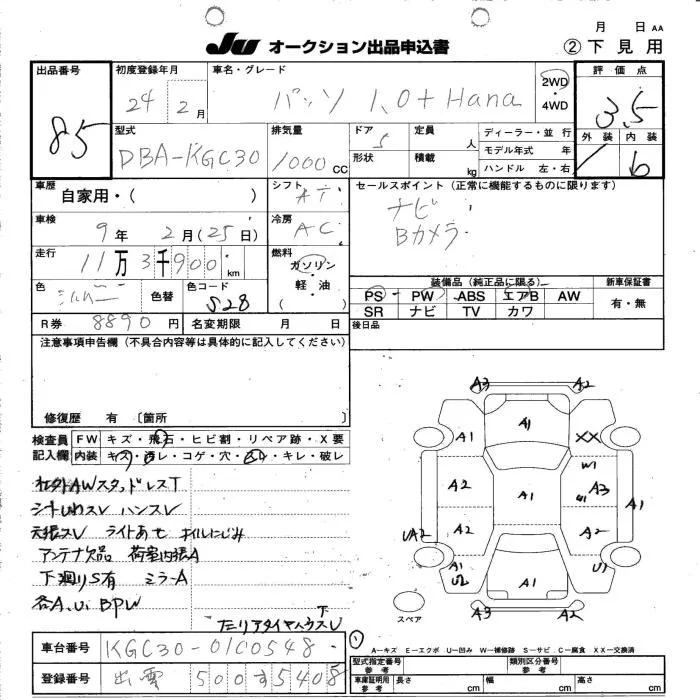 月 日 AA
JU オークション出品申込書
② 下見用
出品番号 85
初度登録年月 24 2月
車名・グレード パッソ 1.0+Hana
2WD・4WD
評価点 3.5
外装 内装 6
型式 DBA-KGC30
排気量 1000cc
ドア 5
形状
定員 人
積載 kg
ディーラー・並行
モデル年式 年
ハンドル 左・右
車歴 自家用・( )
シフト AT
セールスポイント(正常に機能するものに限ります)
ナビ
Bカメラ
車検 9年 2月(25日)
冷房 AC
走行 11万3千900km
燃料 ガソリン・軽油・( )
色 シルバー 色替
色コード S28
装備品(純正品に限る)
PS PW ABS エアB AW
SR ナビ TV カワ
新車保証書 有・無
R券 8890円 名変期限 月 日
後日品
注意事項申告欄(不具合内容等は具体的に記入してください)
修復歴 有〔箇所 〕
検査員記入欄
FW キズ・飛石・ヒビ割・リペア跡・X要
内装 キズ・汚レ・コゲ・穴・スレ・キレ・破レ
社外AWスタッドレスT
シートしわスレ ハンスレ
天張スレ ライトあせ オイルにじみ
アンテナ欠品 荷室内張A
下廻りS有 ミラーA
各A、Ui BPW
下
タイヤハウスV
A3 A2
A1 A1 XX
W1
A2 A1 A3 A1
UA2 A2 A2
A1 U2 A1 U1
A3 A2
スペア
①
A-キズ E-エクボ U-凹み W-補修跡 S-サビ C-腐食 XX-交換済
車台番号 KGC30-0100548
型式指定番号 参考
類別区分番号
登録番号 出雲 500す5408
車庫証明用 参考 長さ cm 幅 cm 高さ cm